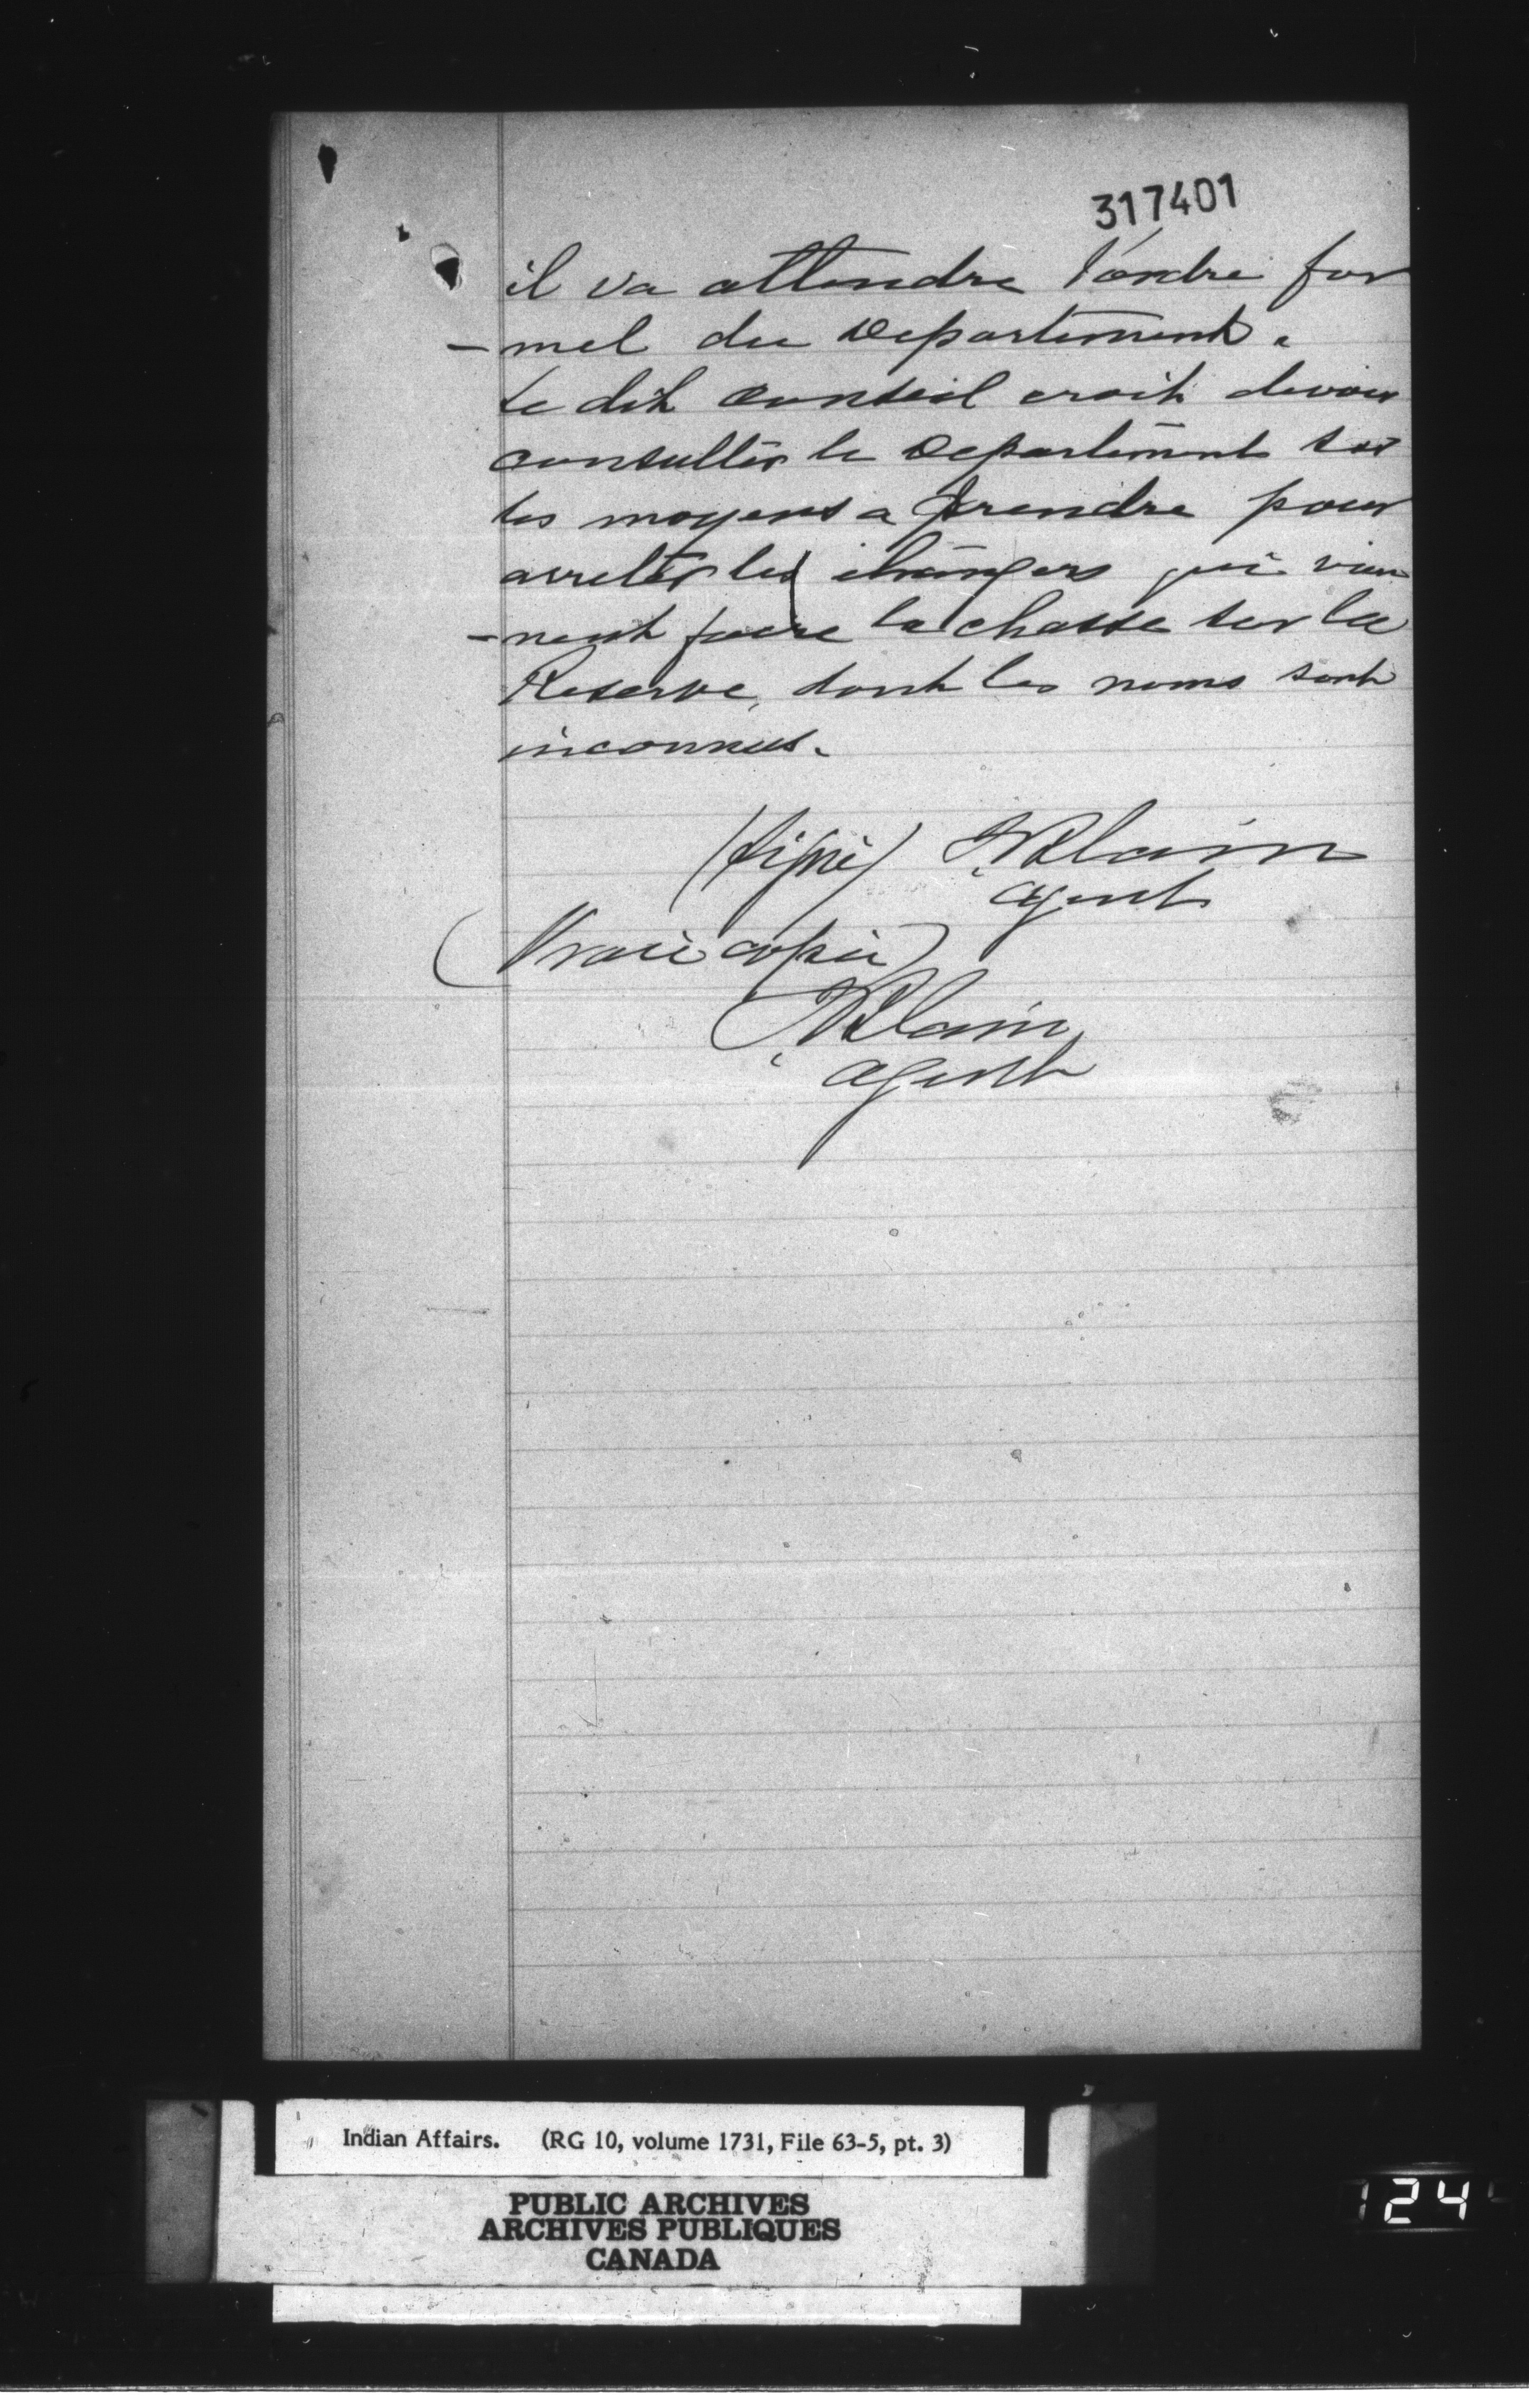 317401
il va attendre l'ordre for
-mel du Departement.
Le dit Conseil croit devoir
consulter le Departement sur
les moyens a prendre pour
arreter les étrangers qui vien
-nent faire la chasse sur la
Reserve, dont les noms sont
inconnus.
(signé)
agent
(Vraie copie)
agent
Indian Affairs. (RG 10, volume 1731, File 63-5, pt. 3)
PUBLIC ARCHIVES
ARCHIVES PUBLIQUES
CANADA
124